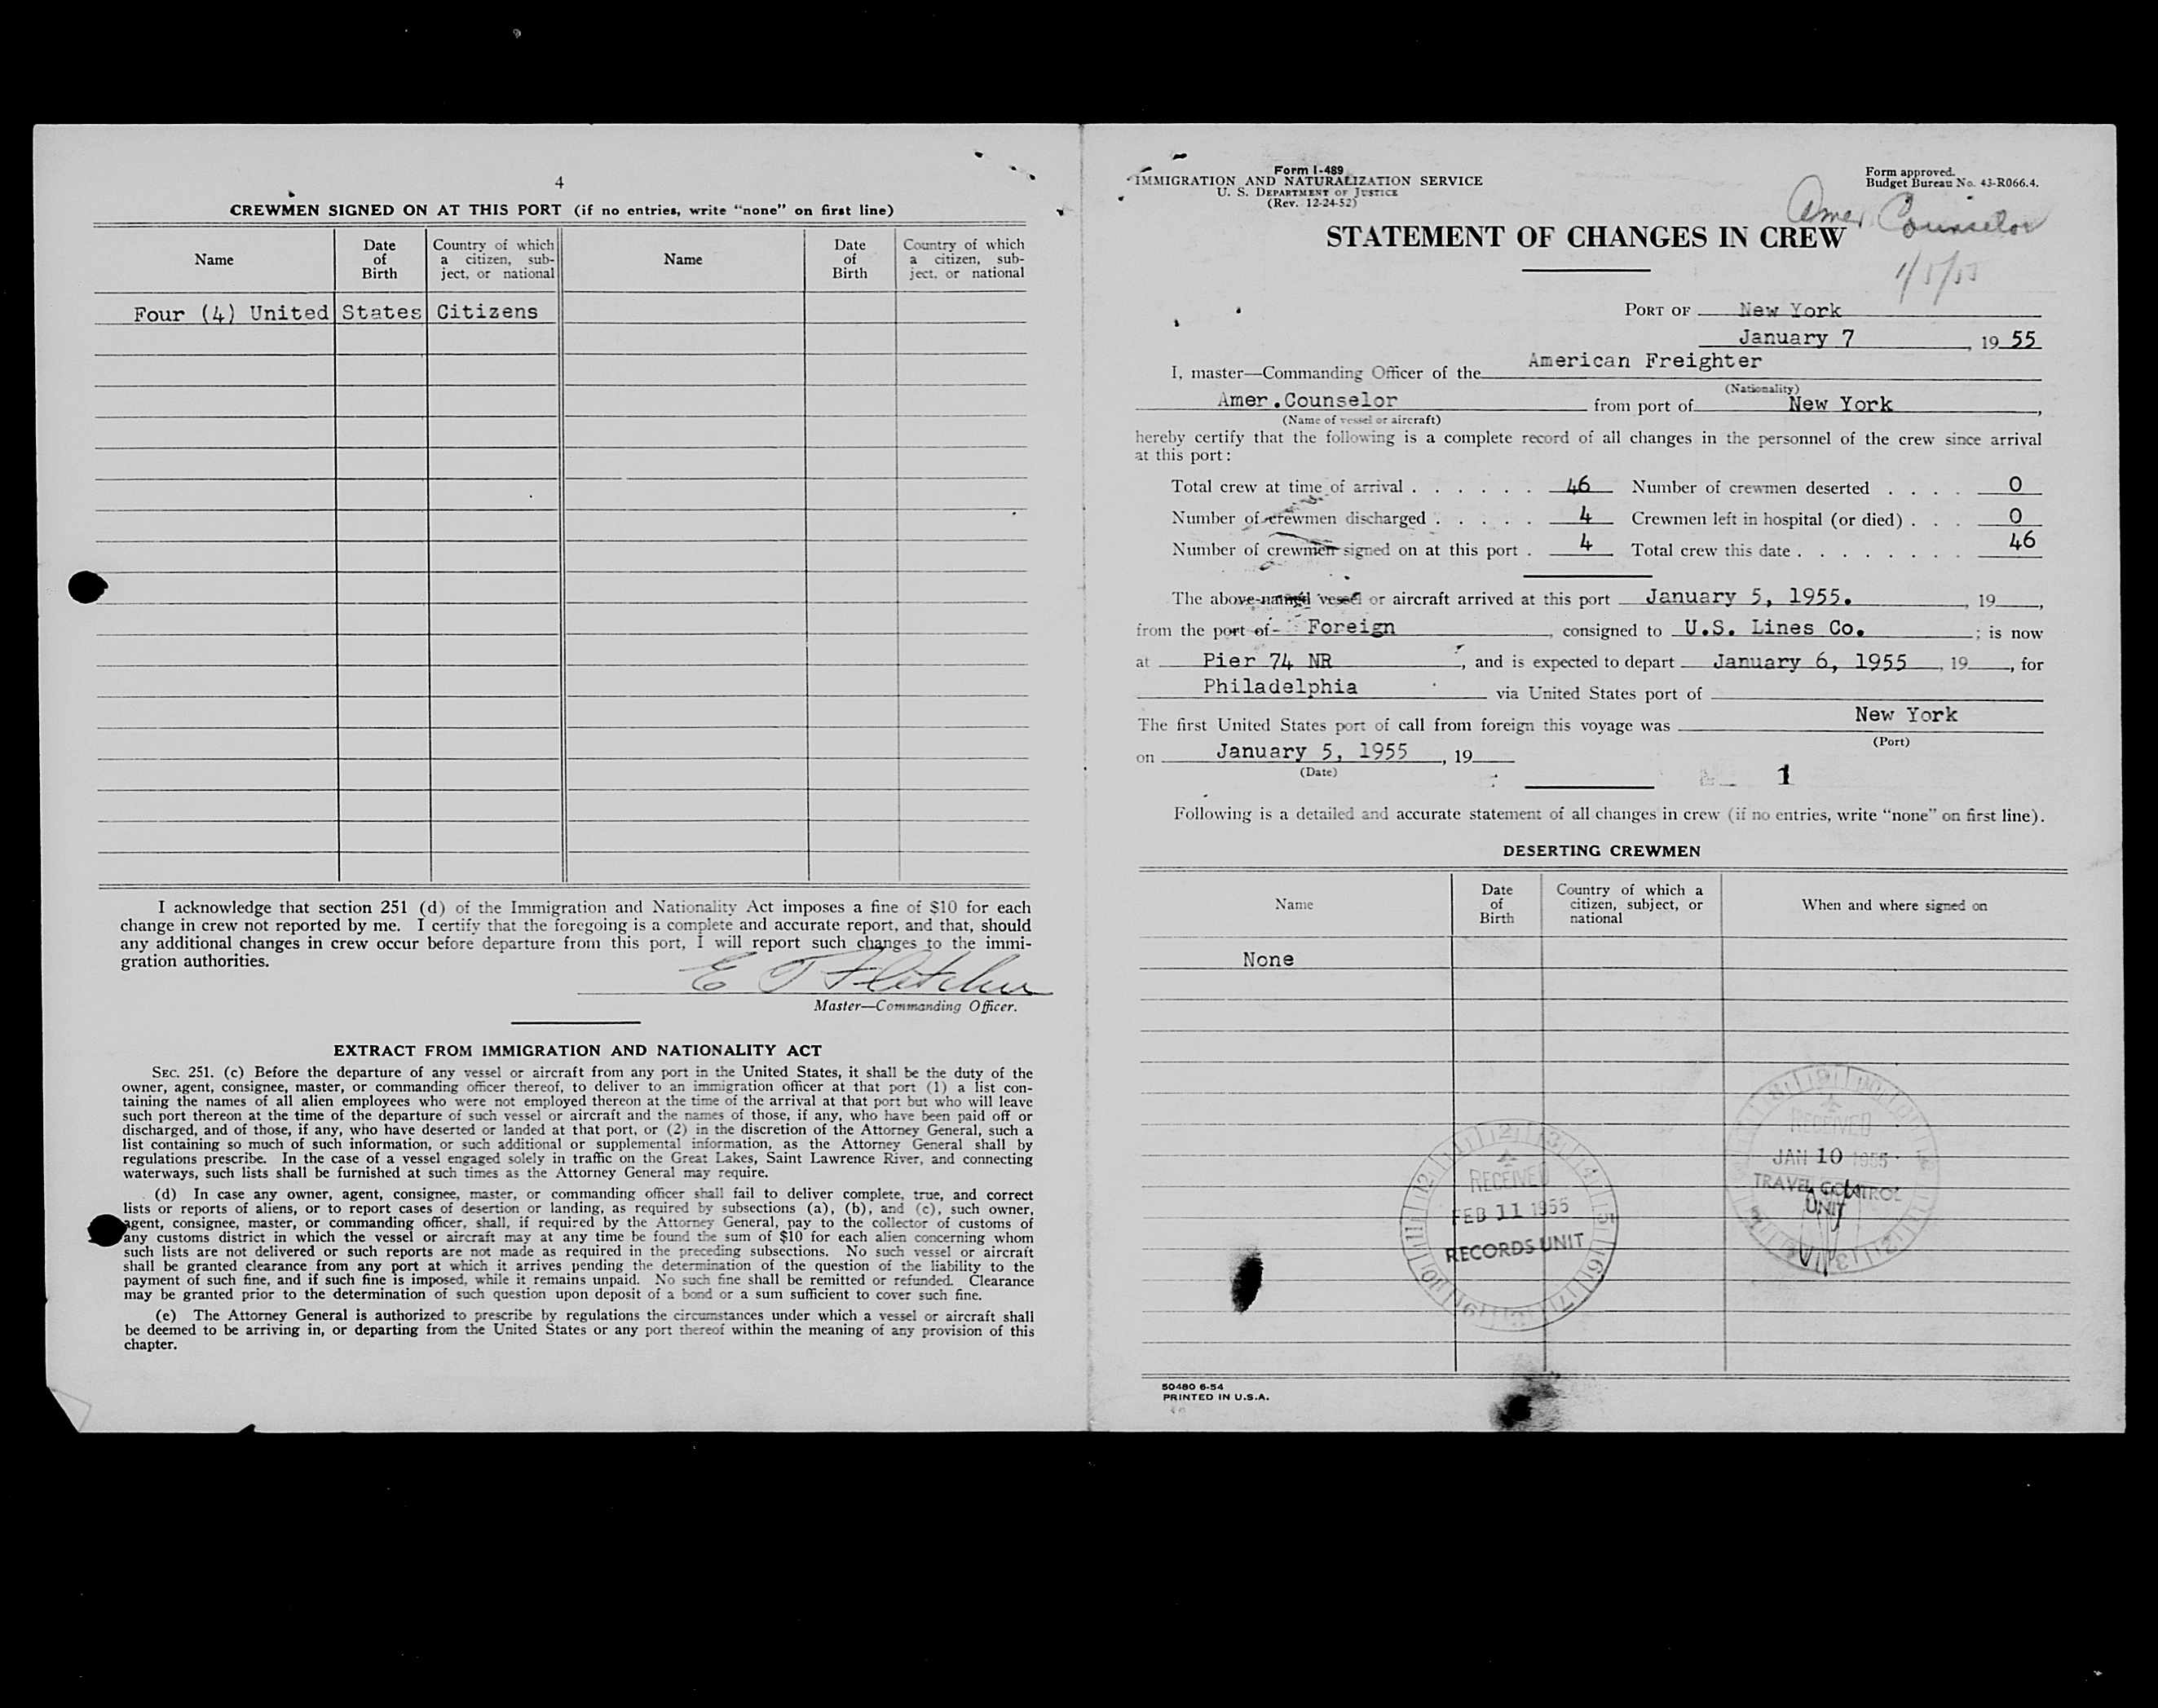 4
CREWMEN SIGNED ON AT THIS PORT (if no entries, write “none” on first line)
Name
Date of Birth
Country of which a citizen, sub-ject, or national
Name
Date of Birth
Country of which a citizen, sub-ject, or national
Four (4) United States Citizens
I acknowledge that section 251 (d) of the Immigration and Nationality Act imposes a fine of $10 for each
change in crew not reported by me. I certify that the foregoing is a complete and accurate report, and that, should
any additional changes in crew occur before departure from this port, I will report such changes to the immi-
gration authorities.
E T Fletcher
Master—Commanding Officer.
EXTRACT FROM IMMIGRATION AND NATIONALITY ACT
SEC. 251. (c) Before the departure of any vessel or aircraft from any port in the United States, it shall be the duty of the
owner, agent, consignee, master, or commanding officer thereof, to deliver to an immigration officer at that port (1) a list con-
taining the names of all alien employees who were not employed thereon at the time of the arrival at that port but who will leave
such port thereon at the time of the departure of such vessel or aircraft and the names of those, if any, who have been paid off or
discharged, and of those, if any, who have deserted or landed at that port, or (2) in the discretion of the Attorney General, such a
list containing so much of such information, or such additional or supplemental information, as the Attorney General shall by
regulations prescribe. In the case of a vessel engaged solely in traffic on the Great Lakes, Saint Lawrence River, and connecting
waterways, such lists shall be furnished at such times as the Attorney General may require.
(d) In case any owner, agent, consignee, master, or commanding officer shall fail to deliver complete, true, and correct
lists or reports of aliens, or to report cases of desertion or landing, as required by subsections (a), (b), and (c), such owner,
agent, consignee, master, or commanding officer, shall, if required by the Attorney General, pay to the collector of customs of
any customs district in which the vessel or aircraft may at any time be found the sum of $10 for each alien concerning whom
such lists are not delivered or such reports are not made as required in the preceding subsections. No such vessel or aircraft
shall be granted clearance from any port at which it arrives pending the determination of the question of the liability to the
payment of such fine, and if such fine is imposed, while it remains unpaid. No such fine shall be remitted or refunded. Clearance
may be granted prior to the determination of such question upon deposit of a bond or a sum sufficient to cover such fine.
(e) The Attorney General is authorized to prescribe by regulations the circumstances under which a vessel or aircraft shall
be deemed to be arriving in, or departing from the United States or any port thereof within the meaning of any provision of this
chapter.
Form I-489
IMMIGRATION AND NATURALIZATION SERVICE
U. S. DEPARTMENT OF JUSTICE
(Rev. 12-24-52)
Form approved.
Budget Bureau No. 43-R066.4.
Amer. Counselor
1/5/55
STATEMENT OF CHANGES IN CREW
PORT OF New York
January 7, 19 55
I, master—Commanding Officer of the American Freighter
(Nationality)
Amer.Counselor from port of New York,
(Name of vessel or aircraft)
hereby certify that the following is a complete record of all changes in the personnel of the crew since arrival
at this port:
Total crew at time of arrival . . . . . . 46 Number of crewmen deserted . . . . 0
Number of crewmen discharged . . . . . 4 Crewmen left in hospital (or died) . . . 0
Number of crewmen signed on at this port . 4 Total crew this date . . . . . . . . 46
The above-named vessel or aircraft arrived at this port January 5, 1955. , 19 ,
from the port of Foreign , consigned to U.S. Lines Co. ; is now
at Pier 74 NR , and is expected to depart January 6, 1955 , 19 , for
Philadelphia via United States port of
The first United States port of call from foreign this voyage was New York
(Port)
on January 5, 1955 , 19
(Date)
1
Following is a detailed and accurate statement of all changes in crew (if no entries, write “none” on first line).
DESERTING CREWMEN
Name
Date of Birth
Country of which a citizen, subject, or national
When and where signed on
None
RECEIVED
JAN 10 1955
TRAVEL CONTROL
UNIT
RECEIVED
FEB 11 1955
RECORDS UNIT
50480 6-54
PRINTED IN U.S.A.